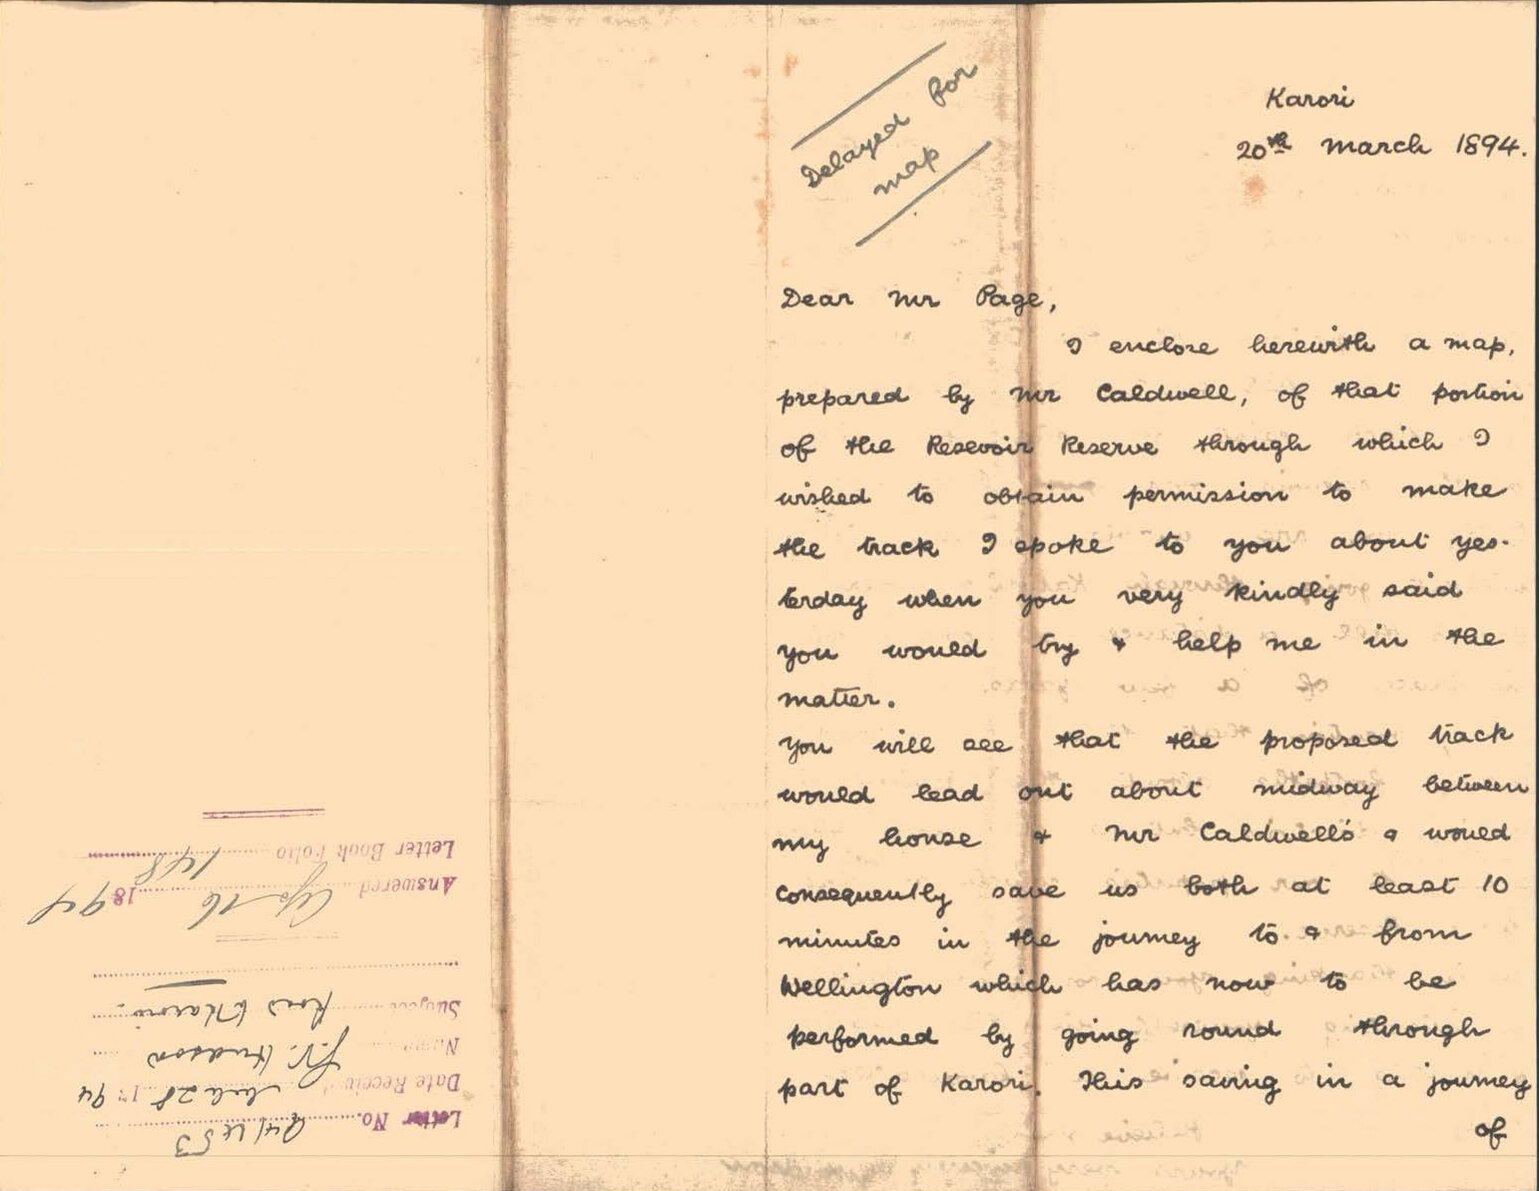 Delayed for
map
Karori
20th March 1894.
Dear Mr Page,
I enclose herewith a map,
prepared by Mr Caldwell, of that portion
of the Resevoir Reserve through which I
wished to obtain permission to make
the track I spoke to you about yes-
terday when you very kindly said
you would try & help me in the
matter.
You will see that the proposed track
would lead out about midway between
my house & Mr Caldwell's & would
consequently save us both at least 10
minutes in the journey to & from
Wellington which has now to be
performed by going round through
part of Karori. This saving in a journey
of
Letter No. 94/453
Date Received Mch 28 1894
Name G.V. Hudson
Subject Road Karori
Answered Ap 16 1894
Letter Book Folio 148